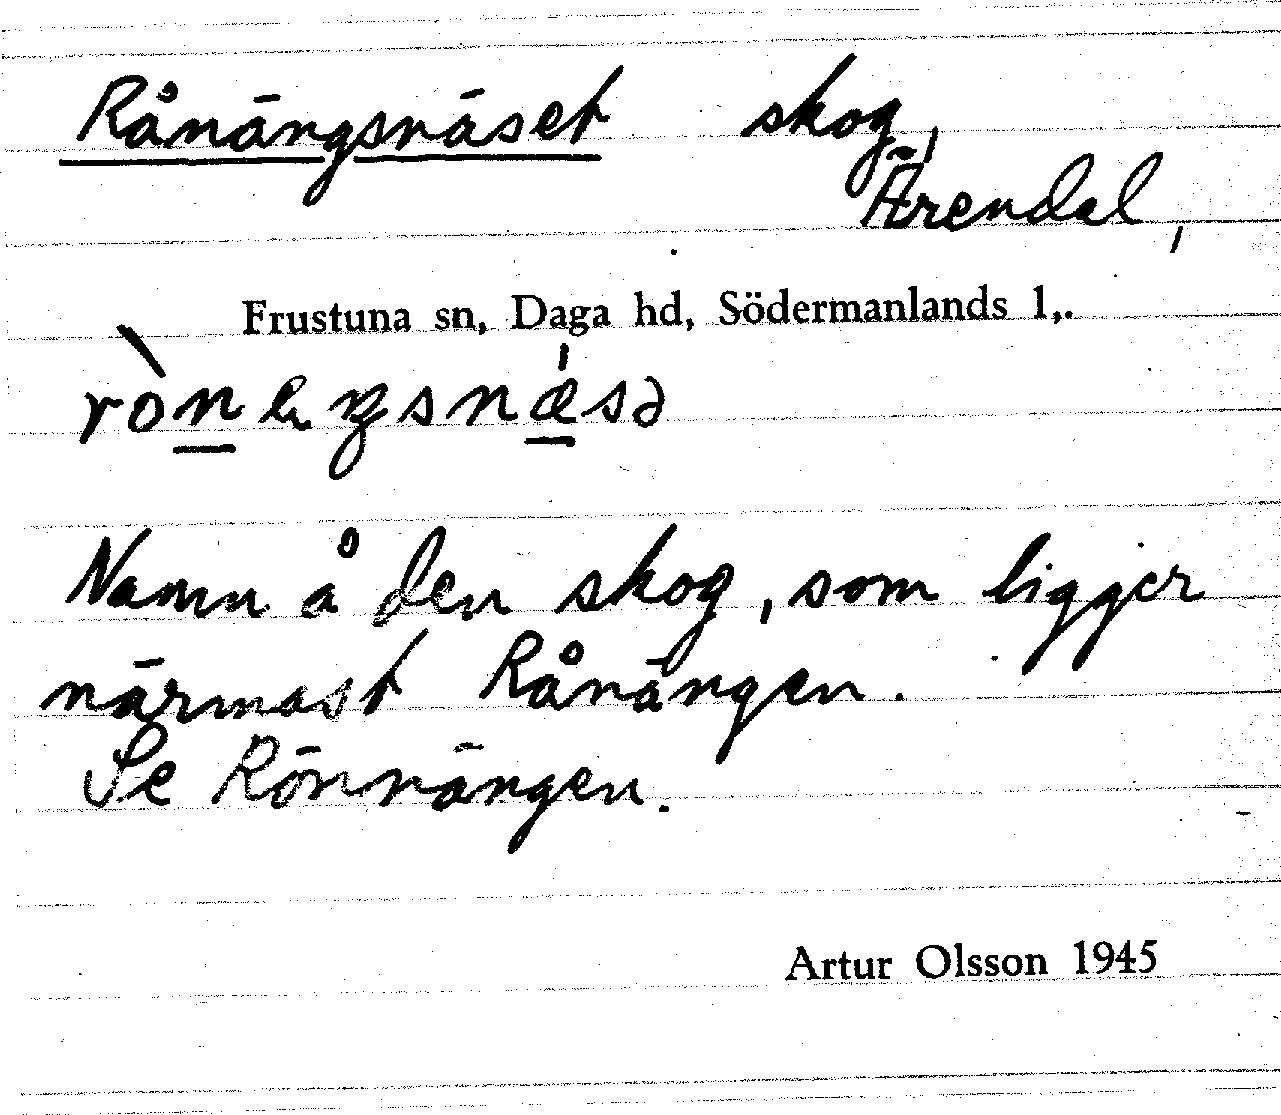 Rånängsnäset skog,
Ärendal,
Frustuna sn, Daga hd, Södermanlands l,.
Namn å den skog, som ligger
närmast Rånängen.
Se Rönnängen.
Artur Olsson 1945